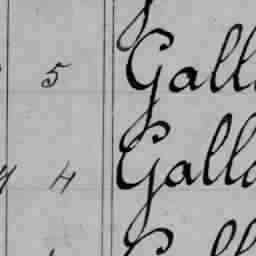 5 Gall
4 Galla